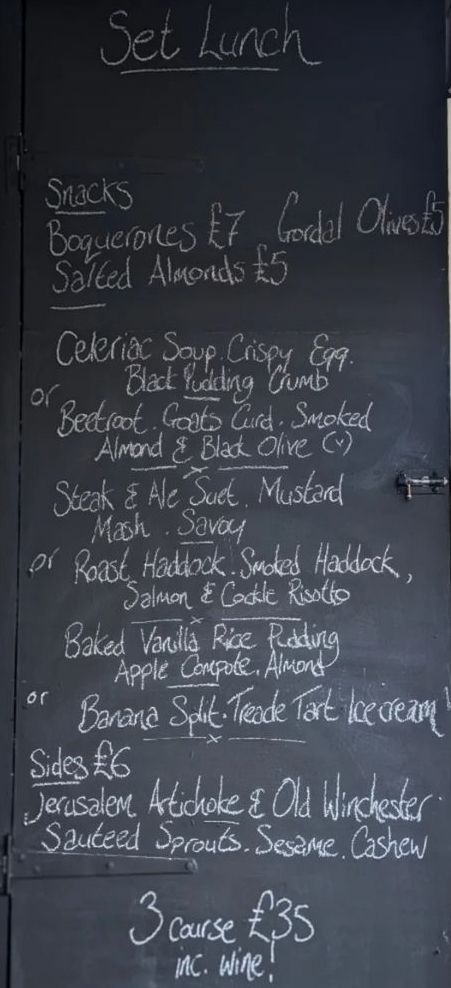 Set Lunch
Snacks
Boquerones £7 Gordal Olives £5
Salted Almonds £5
Celeriac Soup. Crispy Egg.
Black Pudding Crumb
or
Beetroot. Goats Curd. Smoked
Almond & Black Olive (v)
x
Steak & Ale Suet. Mustard
Mash. Savoy
or Roast Haddock. Smoked Haddock,
Salmon & Cockle Risotto
x
Baked Vanilla Rice Pudding
Apple Compote. Almond
or
Banana Split. Treacle Tart Ice cream
x
Sides £6
Jerusalem Artichoke & Old Winchester.
Sauteed Sprouts. Sesame. Cashew
3 course £35
inc. wine!